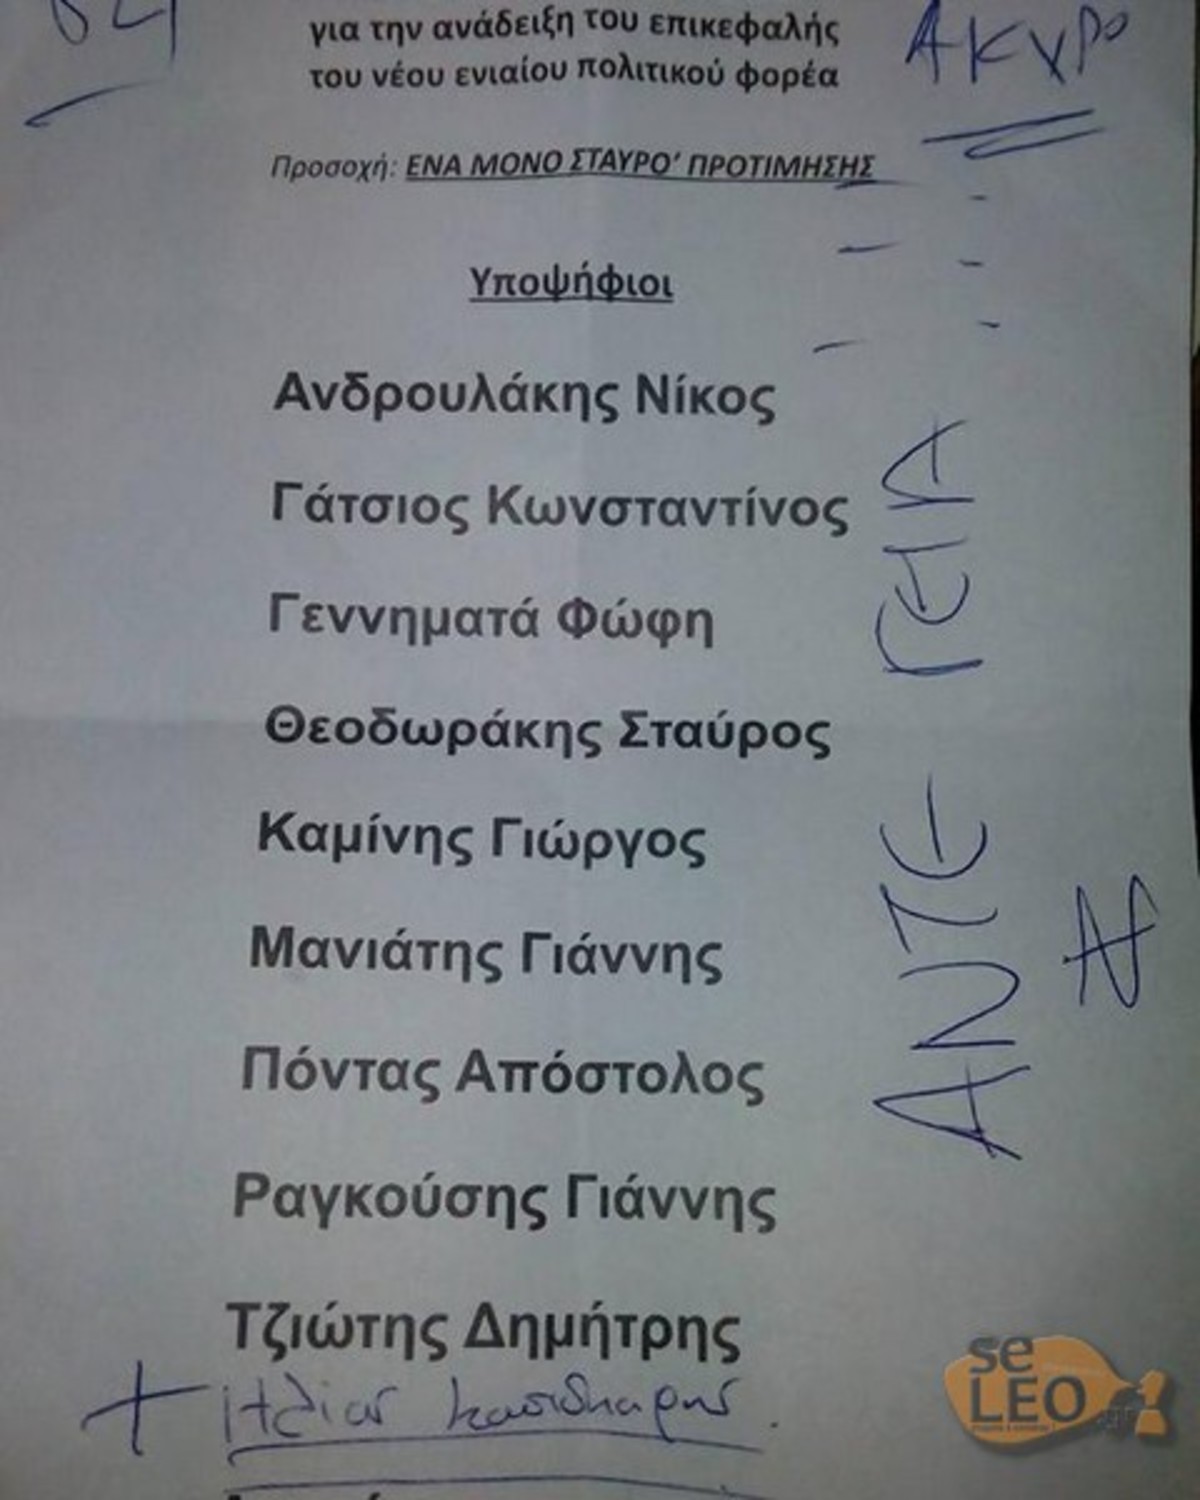 για την ανάδειξη του επικεφαλής
του νέου ενιαίου πολιτικού φορέα
ΑΚΥΡΟ
Προσοχή: ΕΝΑ ΜΟΝΟ ΣΤΑΥΡΟ' ΠΡΟΤΙΜΗΣΗΣ
Υποψήφιοι
Ανδρουλάκης Νίκος
Γάτσιος Κωνσταντίνος
Γεννηματά Φώφη
Θεοδωράκης Σταύρος
Καμίνης Γιώργος
Μανιάτης Γιάννης
Πόντας Απόστολος
Ραγκούσης Γιάννης
Τζιώτης Δημήτρης
+ Ηλίας Κασιδιαρης.
ΑΝΤΕ ΓΕΙΑ
se
LEO